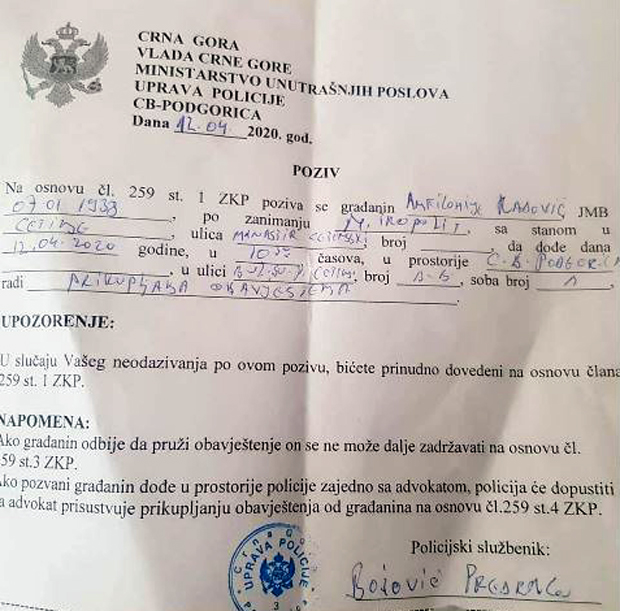 CRNA GORA
VLADA CRNE GORE
MINISTARSTVO UNUTRAŠNJIH POSLOVA
UPRAVA POLICIJE
CB-PODGORICA
Dana 12.04. 2020. god.
POZIV
Na osnovu čl. 259 st. 1 ZKP poziva se građanin Amfilohije Radović JMB
07 01 1938, po zanimanju MITROPOLIT, sa stanom u
CETINJE, ulica MANASTIR CETINJSKI broj, da dođe dana
12.04.2020 godine, u 10 časova, u prostorije C.B. PODGORICA
, u ulici, broj, soba broj 1,
radi PRIKUPLJANJA OBAVJEŠTENJA.
UPOZORENJE:
U slučaju Vašeg neodazivanja po ovom pozivu, bićete prinudno dovedeni na osnovu člana
259 st. 1 ZKP.
NAPOMENA:
Ako građanin odbije da pruži obavještenje on se ne može dalje zadržavati na osnovu čl.
59 st.3 ZKP.
ko pozvani građanin dođe u prostorije policije zajedno sa advokatom, policija će dopustiti
a advokat prisustvuje prikupljanju obavještenja od građanina na osnovu čl.259 st.4 ZKP.
Policijski službenik:
Crna Gora
UPRAVA POLICIJE
3
Božović